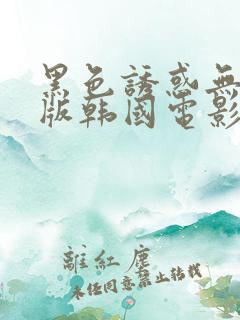 黑色誘惑無
版韩國電影
離紅塵
未任同意禁止轉載